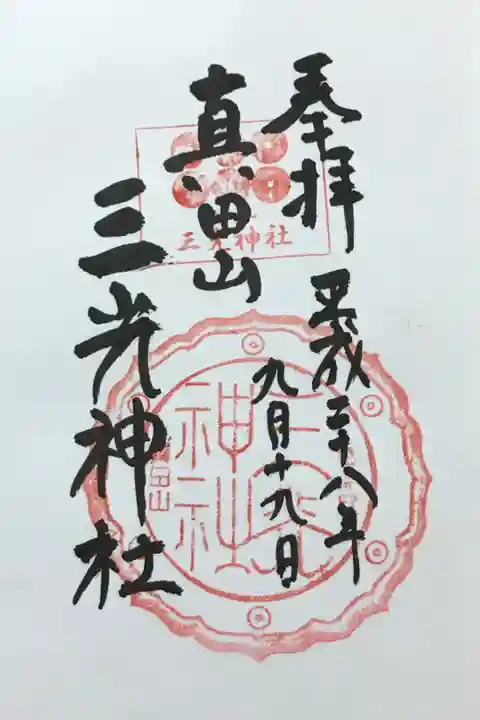 奉拝
平成二十八年
九月十九日
真田山
三光神社
三光神社
三光神社
真田山